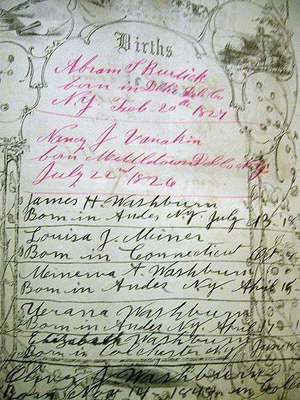 Births
Abram S Burdick
born in Delhi Del. Co
N.Y. Feb. 20th 1827
Nancy J Vanakin
born Del Co N.Y.
July 22nd 1826
James H Washburn
Born in Andes N.Y. July 13 18
Louisa J. Meiner
Born in Connecticut Oct
Menerva F Washburn
Born in Andes N.Y. April 16
Verana Washburn
Born in Andes N.Y. April 17
Elizabeth Washburn
Born in Colchester N.Y. June
Oliver J Washburn
Born Nov 14 1849 in Col